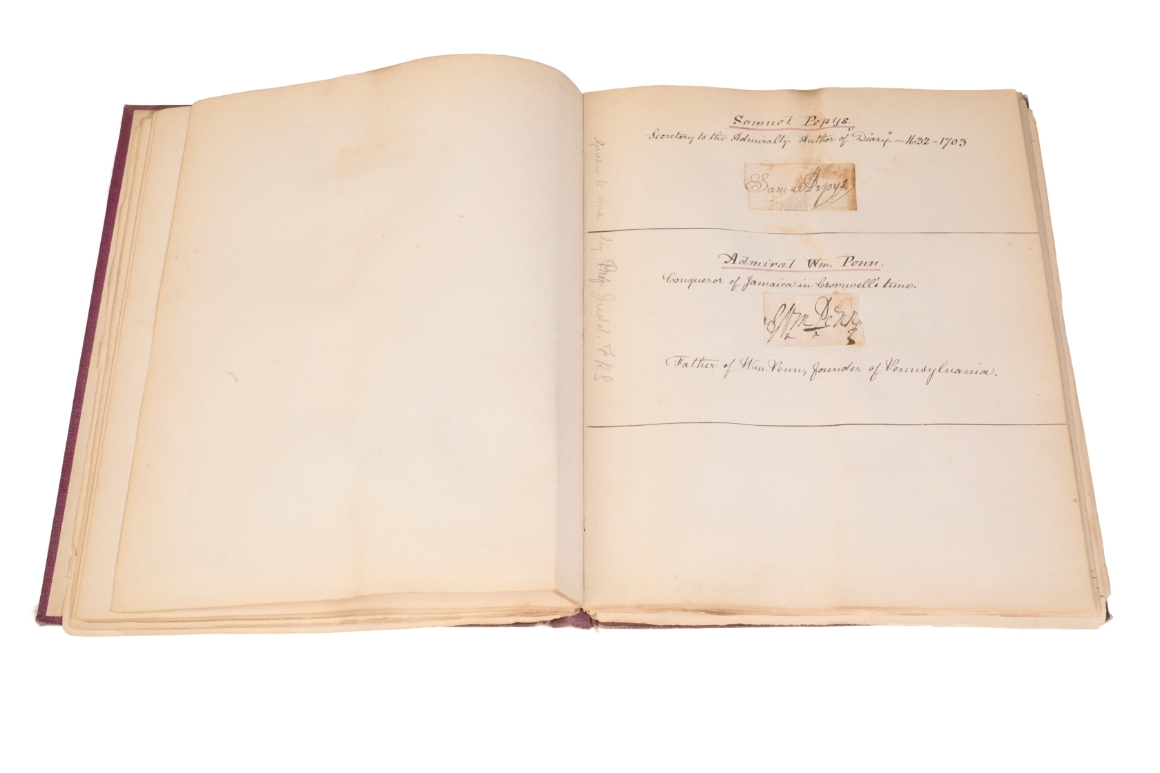 Samuel Pepys.
Secretary to the Admiralty. Author of "Diary" — 1632 - 1703
Samuel Pepys
Admiral Wm. Penn.
Conqueror of Jamaica in Cromwell's time.
Wm Penn
Father of Wm. Penn, founder of Pennsylvania.
to me by Prof Judd. F.R.S